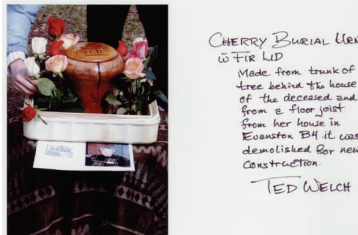 CHERRY BURIAL URN
w̄ FIR LID
Made from trunk of
tree behind the house
of the deceased and
from a floor joist
from her house in
Evanston B4 it was
demolished for new
construction.
TED WELCH